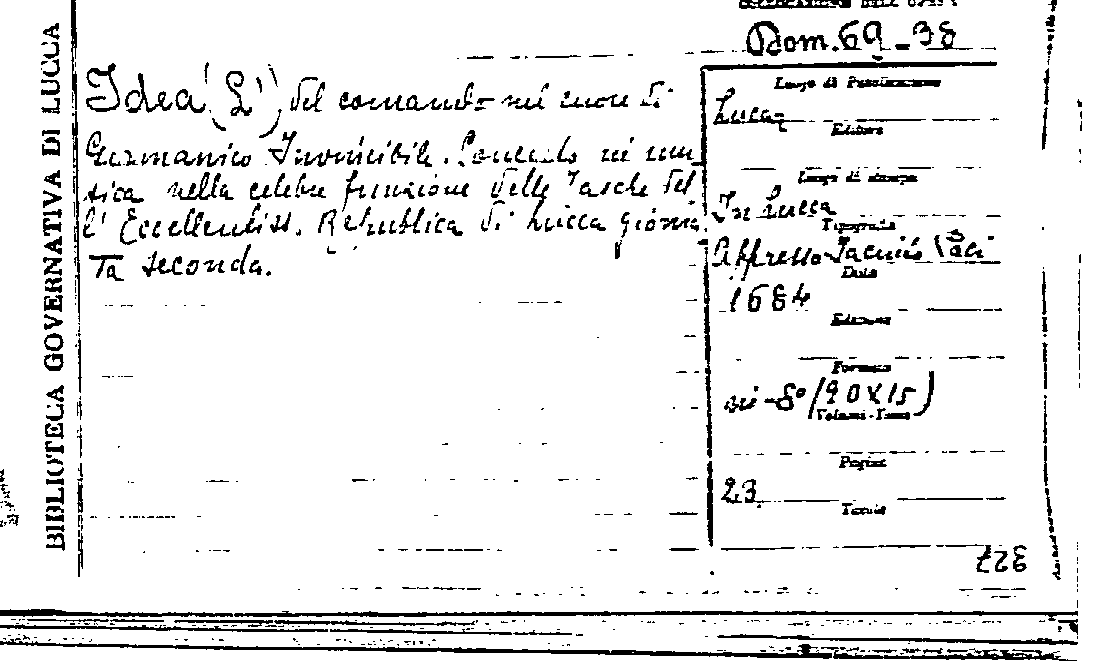 BIBLIOTECA GOVERNATIVA DI LUCCA
COLLOCAZIONE DELL'OPERA
Dom. 69-38
Idea (L') del comando nel cuore di
Germanico Invincibile. in mu-
sica nella celebre funzione delle Tasche del
l'Eccellentiss. Republica di Lucca giorna
ta seconda.
Luogo di Pubblicazione
Lucca
Editore
Luogo di stampa
In Lucca
Tipografia
Appresso Iacinto Paci
Data
1684
Edizione
Formato
in-8° (20x15)
Volumi-Tomi
Pagine
23
Tavole
327